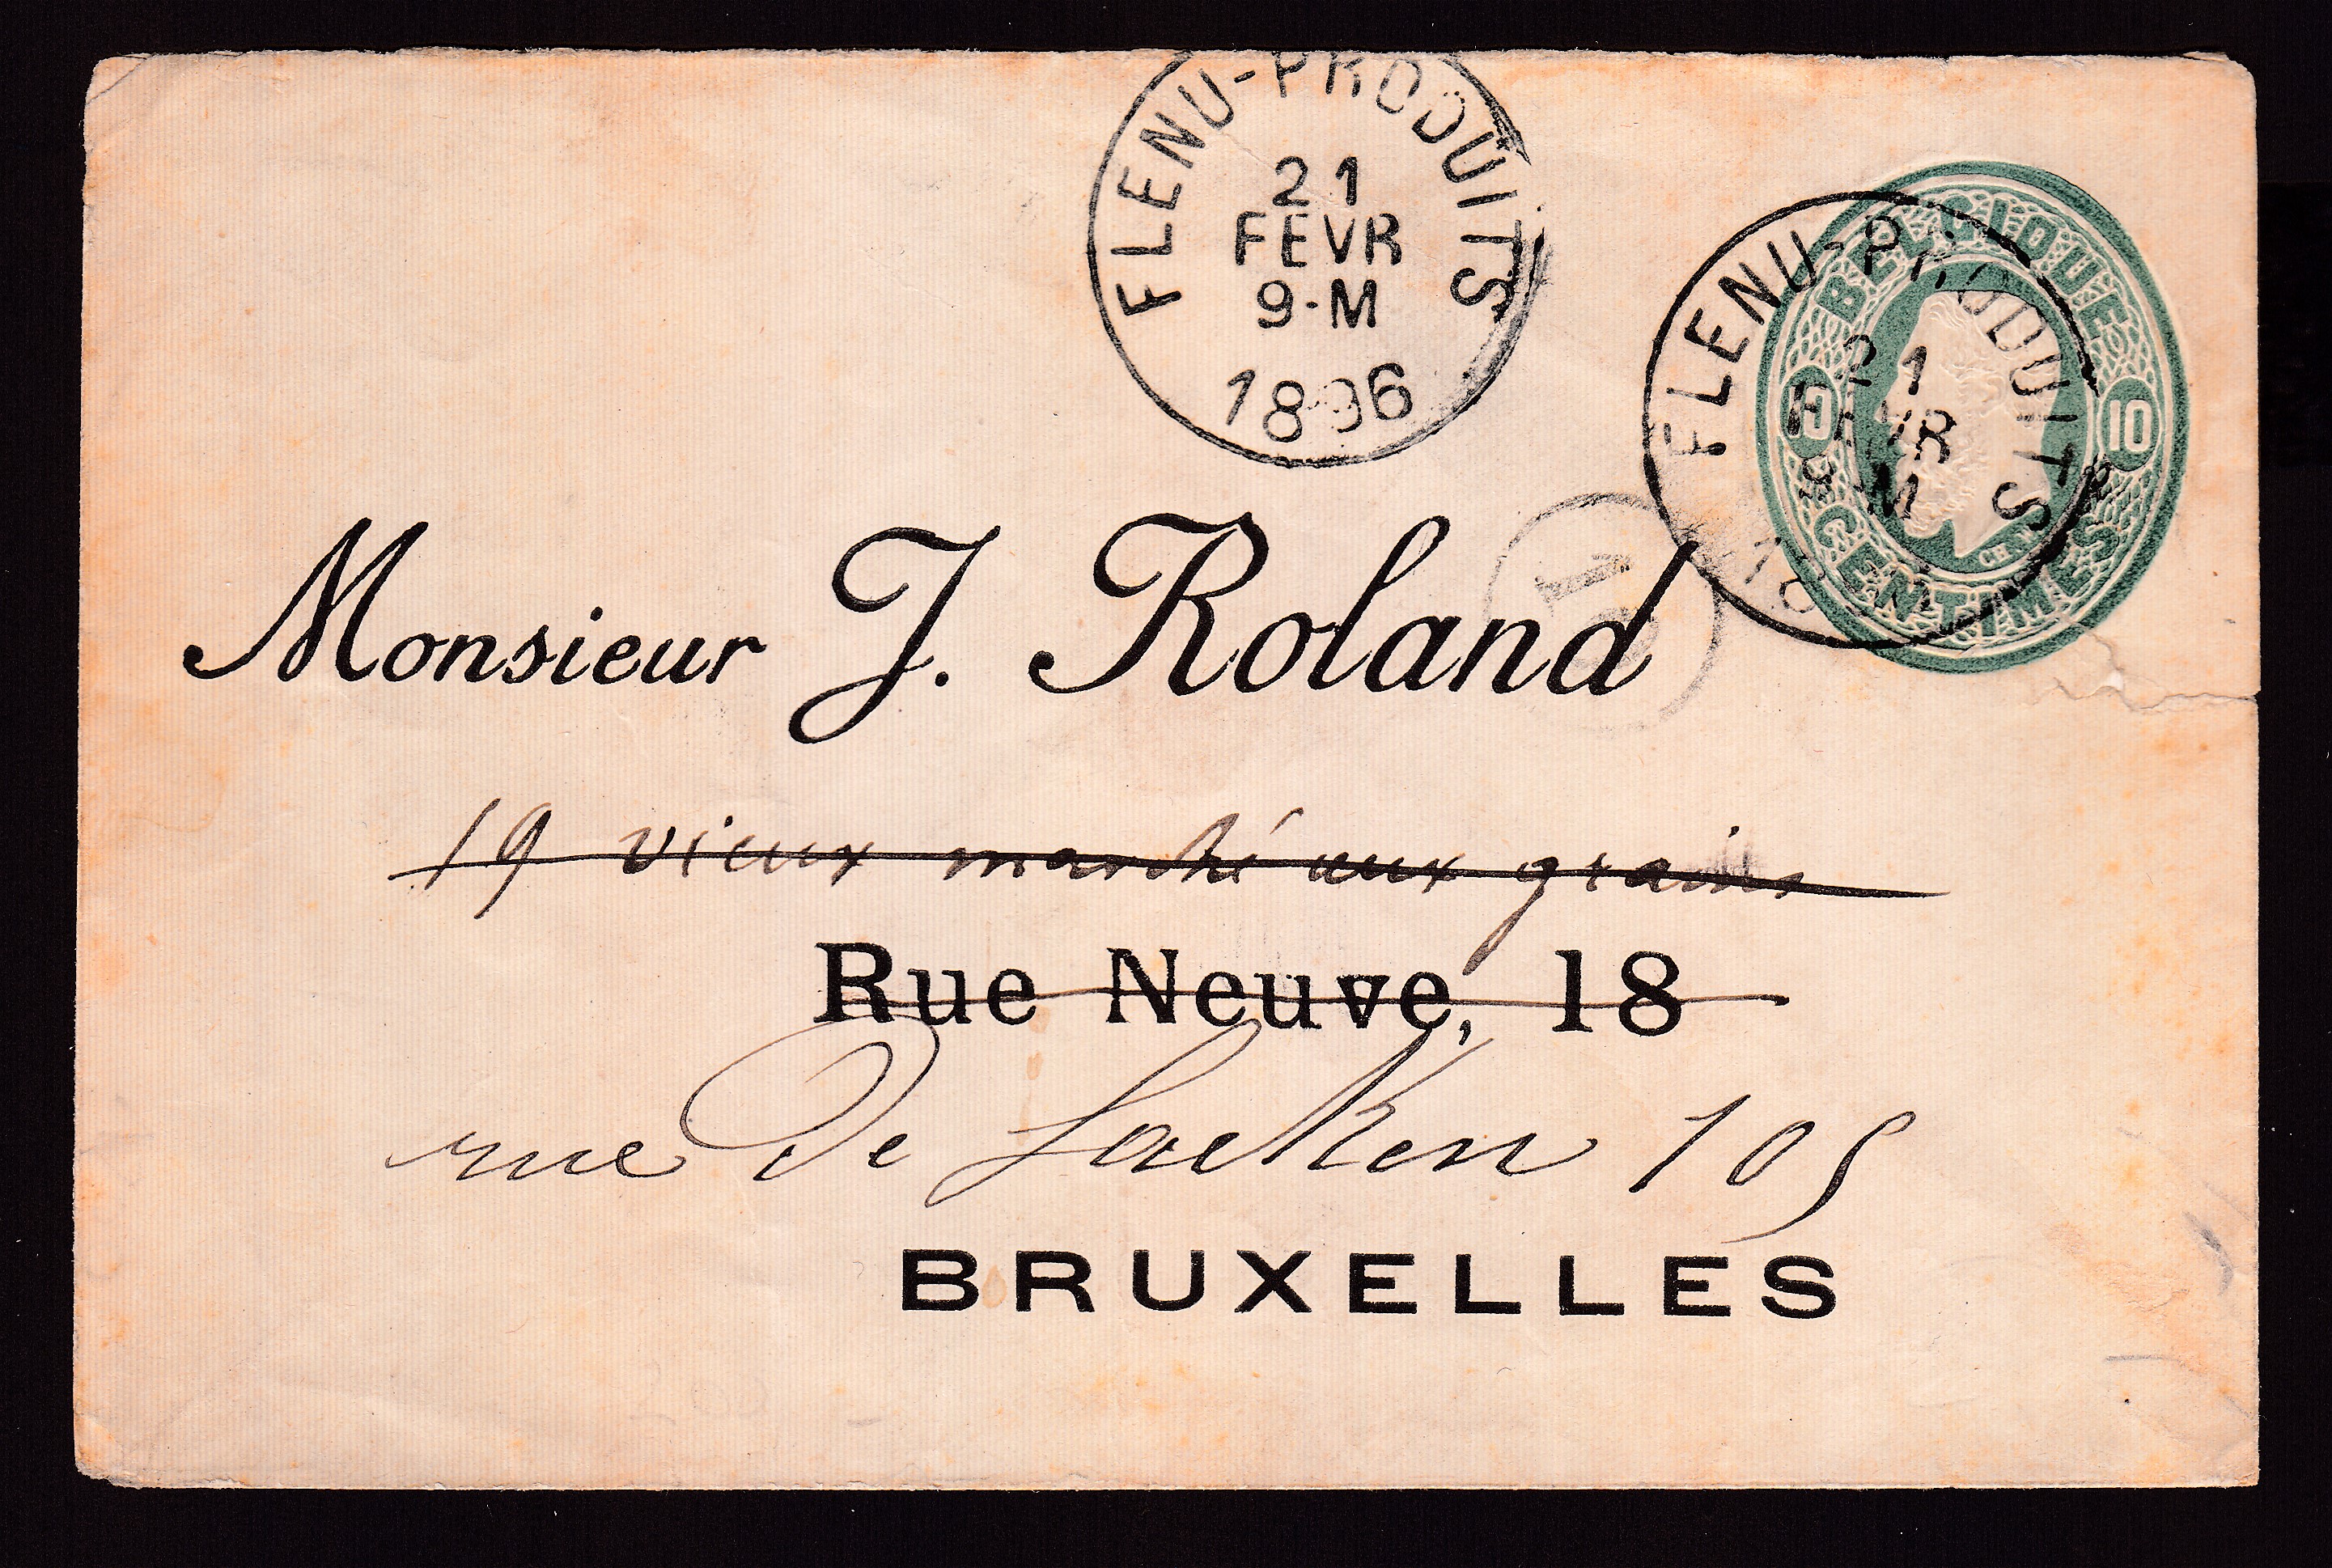 FLENU-PRODUITS
21
FEVR
9-M
1896
FLENU-PRODUITS
21
FEVR
9 M
18
BELGIQUE
10 10
CENTIMES
Monsieur J. Roland
19 vieux marché aux grains
Rue Neuve, 18
rue de Laeken 105
BRUXELLES